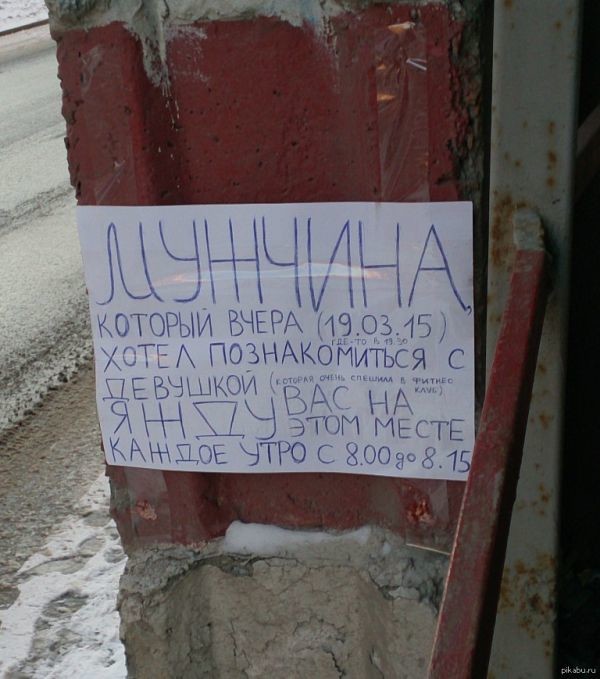 МУЖЧИНА,
КОТОРЫЙ ВЧЕРА (19.03.15)
ГДЕ-ТО В 19.30
ХОТЕЛ ПОЗНАКОМИТЬСЯ С
ДЕВУШКОЙ (КОТОРАЯ ОЧЕНЬ СПЕШИЛА В ФИТНЕС КЛУБ)
Я ЖДУ ВАС НА
ЭТОМ МЕСТЕ
КАЖДОЕ УТРО С 8.00 до 8.15
pikabu.ru